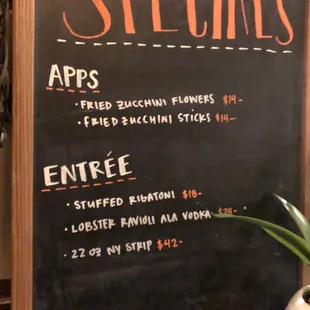 SPECIALS
APPS
• FRIED ZUCCHINI FLOWERS $14-
• FRIED ZUCCHINI STICKS $14-
ENTRÉE
• STUFFED RIGATONI $18-
• LOBSTER RAVIOLI ALA VODKA $29-
• 22 OZ NY STRIP $42-